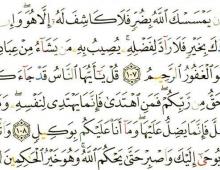 يَمْسَسْكَ ٱللَّهُ بِضُرٍّ فَلَا كَاشِفَ لَهُۥٓ إِلَّا هُوَ ۖ وَإِ
كَ بِخَيْرٍ فَلَا رَآدَّ لِفَضْلِهِۦ ۚ يُصِيبُ بِهِۦ مَن يَشَآءُ مِنْ عِبَادِ
وَ ٱلْغَفُورُ ٱلرَّحِيمُ ١٠٧ قُلْ يَٰٓأَيُّهَا ٱلنَّاسُ قَدْ جَآءَ
مِن رَّبِّكُمْ ۖ فَمَنِ ٱهْتَدَىٰ فَإِنَّمَا يَهْتَدِى لِنَفْسِهِۦ ۖ وَ
فَإِنَّمَا يَضِلُّ عَلَيْهَا ۖ وَمَآ أَنَا۠ عَلَيْكُم بِوَكِيلٍ ١٠٨
وحَىٰٓ إِلَيْكَ وَٱصْبِرْ حَتَّىٰ يَحْكُمَ ٱللَّهُ ۚ وَهُوَ خَيْرُ ٱلْحَٰكِمِينَ